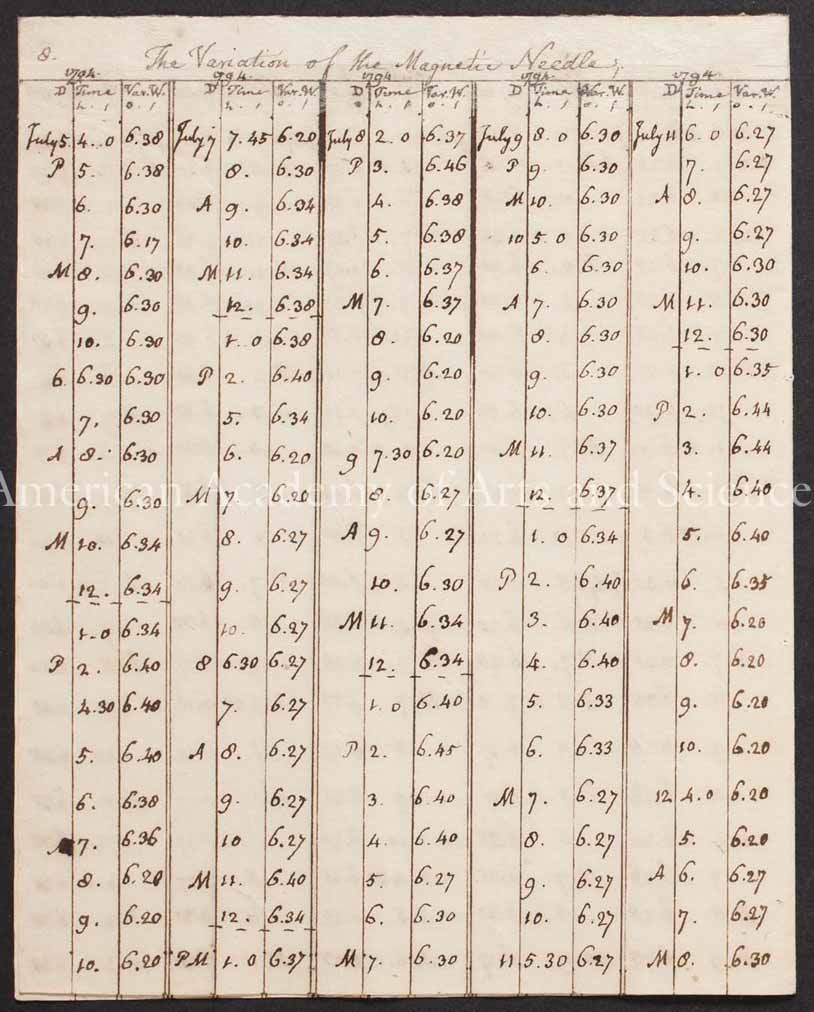 8. The Variation of the Magnetic Needle;
1794. 1794. 1794 1794. 1794
D Time Var.W. D Time Var.W. D Time Var.W. D Time Var.W. D Time Var.W.
h. ' o. ' h. ' o. ' h. ' o. ' h. ' o. ' h. ' o. '
July 5. 4. 0 6.38 July 7 7.45 6.20 July 8 2. 0 6.37 July 9 8. 0 6.30 July 11 6. 0 6.27
P 5. 6.38 8. 6.30 P 3. 6.46 P 9. 6.30 7. 6.27
6. 6.30 A 9. 6.34 4. 6.38 M 10. 6.30 A 8. 6.27
7. 6.17 10. 6.34 5. 6.38 10 5. 0 6.30 9. 6.27
M 8. 6.30 M 11. 6.34 6. 6.37 6. 6.30 10. 6.30
9. 6.30 12. 6.38 M 7. 6.37 A 7. 6.30 M 11. 6.30
10. 6.30 1. 0 6.38 8. 6.20 8. 6.30 12. 6.30
6. 6.30 6.30 P 2. 6.40 9. 6.20 9. 6.30 1. 0 6.35
7. 6.30 5. 6.34 10. 6.20 10. 6.30 P 2. 6.44
A 8. 6.30 6. 6.20 9 7.30 6.20 M 11. 6.37 3. 6.44
9. 6.30 M 7. 6.20 8. 6.27 12. 6.37 4. 6.40
American Academy of Arts and Science
M 10. 6.34 8. 6.27 A 9. 6.27 1. 0 6.34 5. 6.40
12. 6.34 9. 6.27 10. 6.30 P 2. 6.40 6. 6.35
1. 0 6.34 10. 6.27 M 11. 6.34 3. 6.40 M 7. 6.20
P 2. 6.40 8 6.30 6.27 12. 6.34 4. 6.40 8. 6.20
4.30 6.40 7. 6.27 1. 0 6.40 5. 6.33 9. 6.20
5. 6.40 A 8. 6.27 P 2. 6.45 6. 6.33 10. 6.20
6. 6.38 9. 6.27 3. 6.40 M 7. 6.27 12 4. 0 6.20
M 7. 6.36 10 6.27 4. 6.40 8. 6.27 5. 6.20
8. 6.20 M 11. 6.40 5. 6.27 9. 6.27 A 6. 6.27
9. 6.20 12. 6.34 6. 6.30 10. 6.27 7. 6.27
10. 6.20 PM 1. 0 6.37 M 7. 6.30 11 5.30 6.27 M 8. 6.30